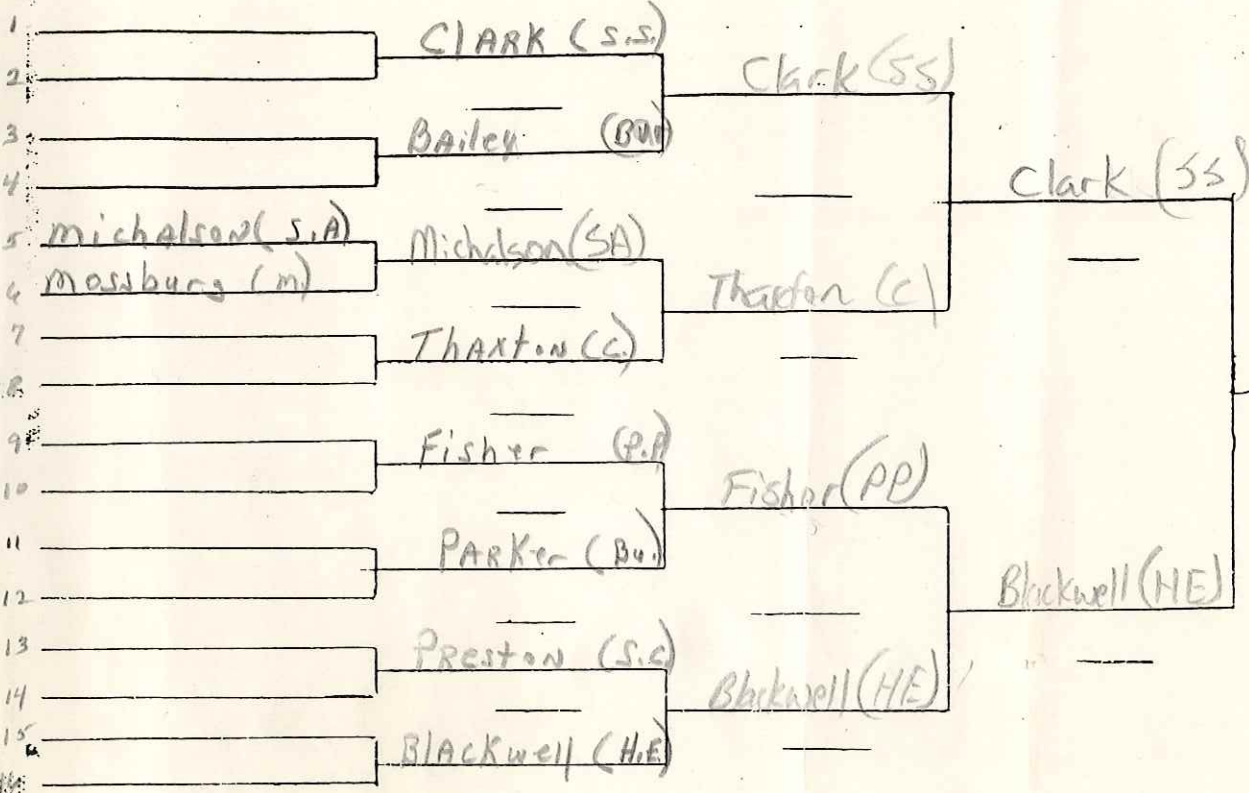 1
2
3
4
5 michalson (S.A)
6 mossburg (m)
7
8
9
10
11
12
13
14
15
16
CLARK (S.S.)
BAiley (Bur)
Michalson (SA)
THAXTON (C.)
Fisher (P.P)
PARKer (Bu.)
PREston (S.C)
BLACKwell (H.E)
Clark (SS)
Thaxton (C)
Fisher (PP)
Blackwell (HE)
Clark (SS)
Blackwell (HE)